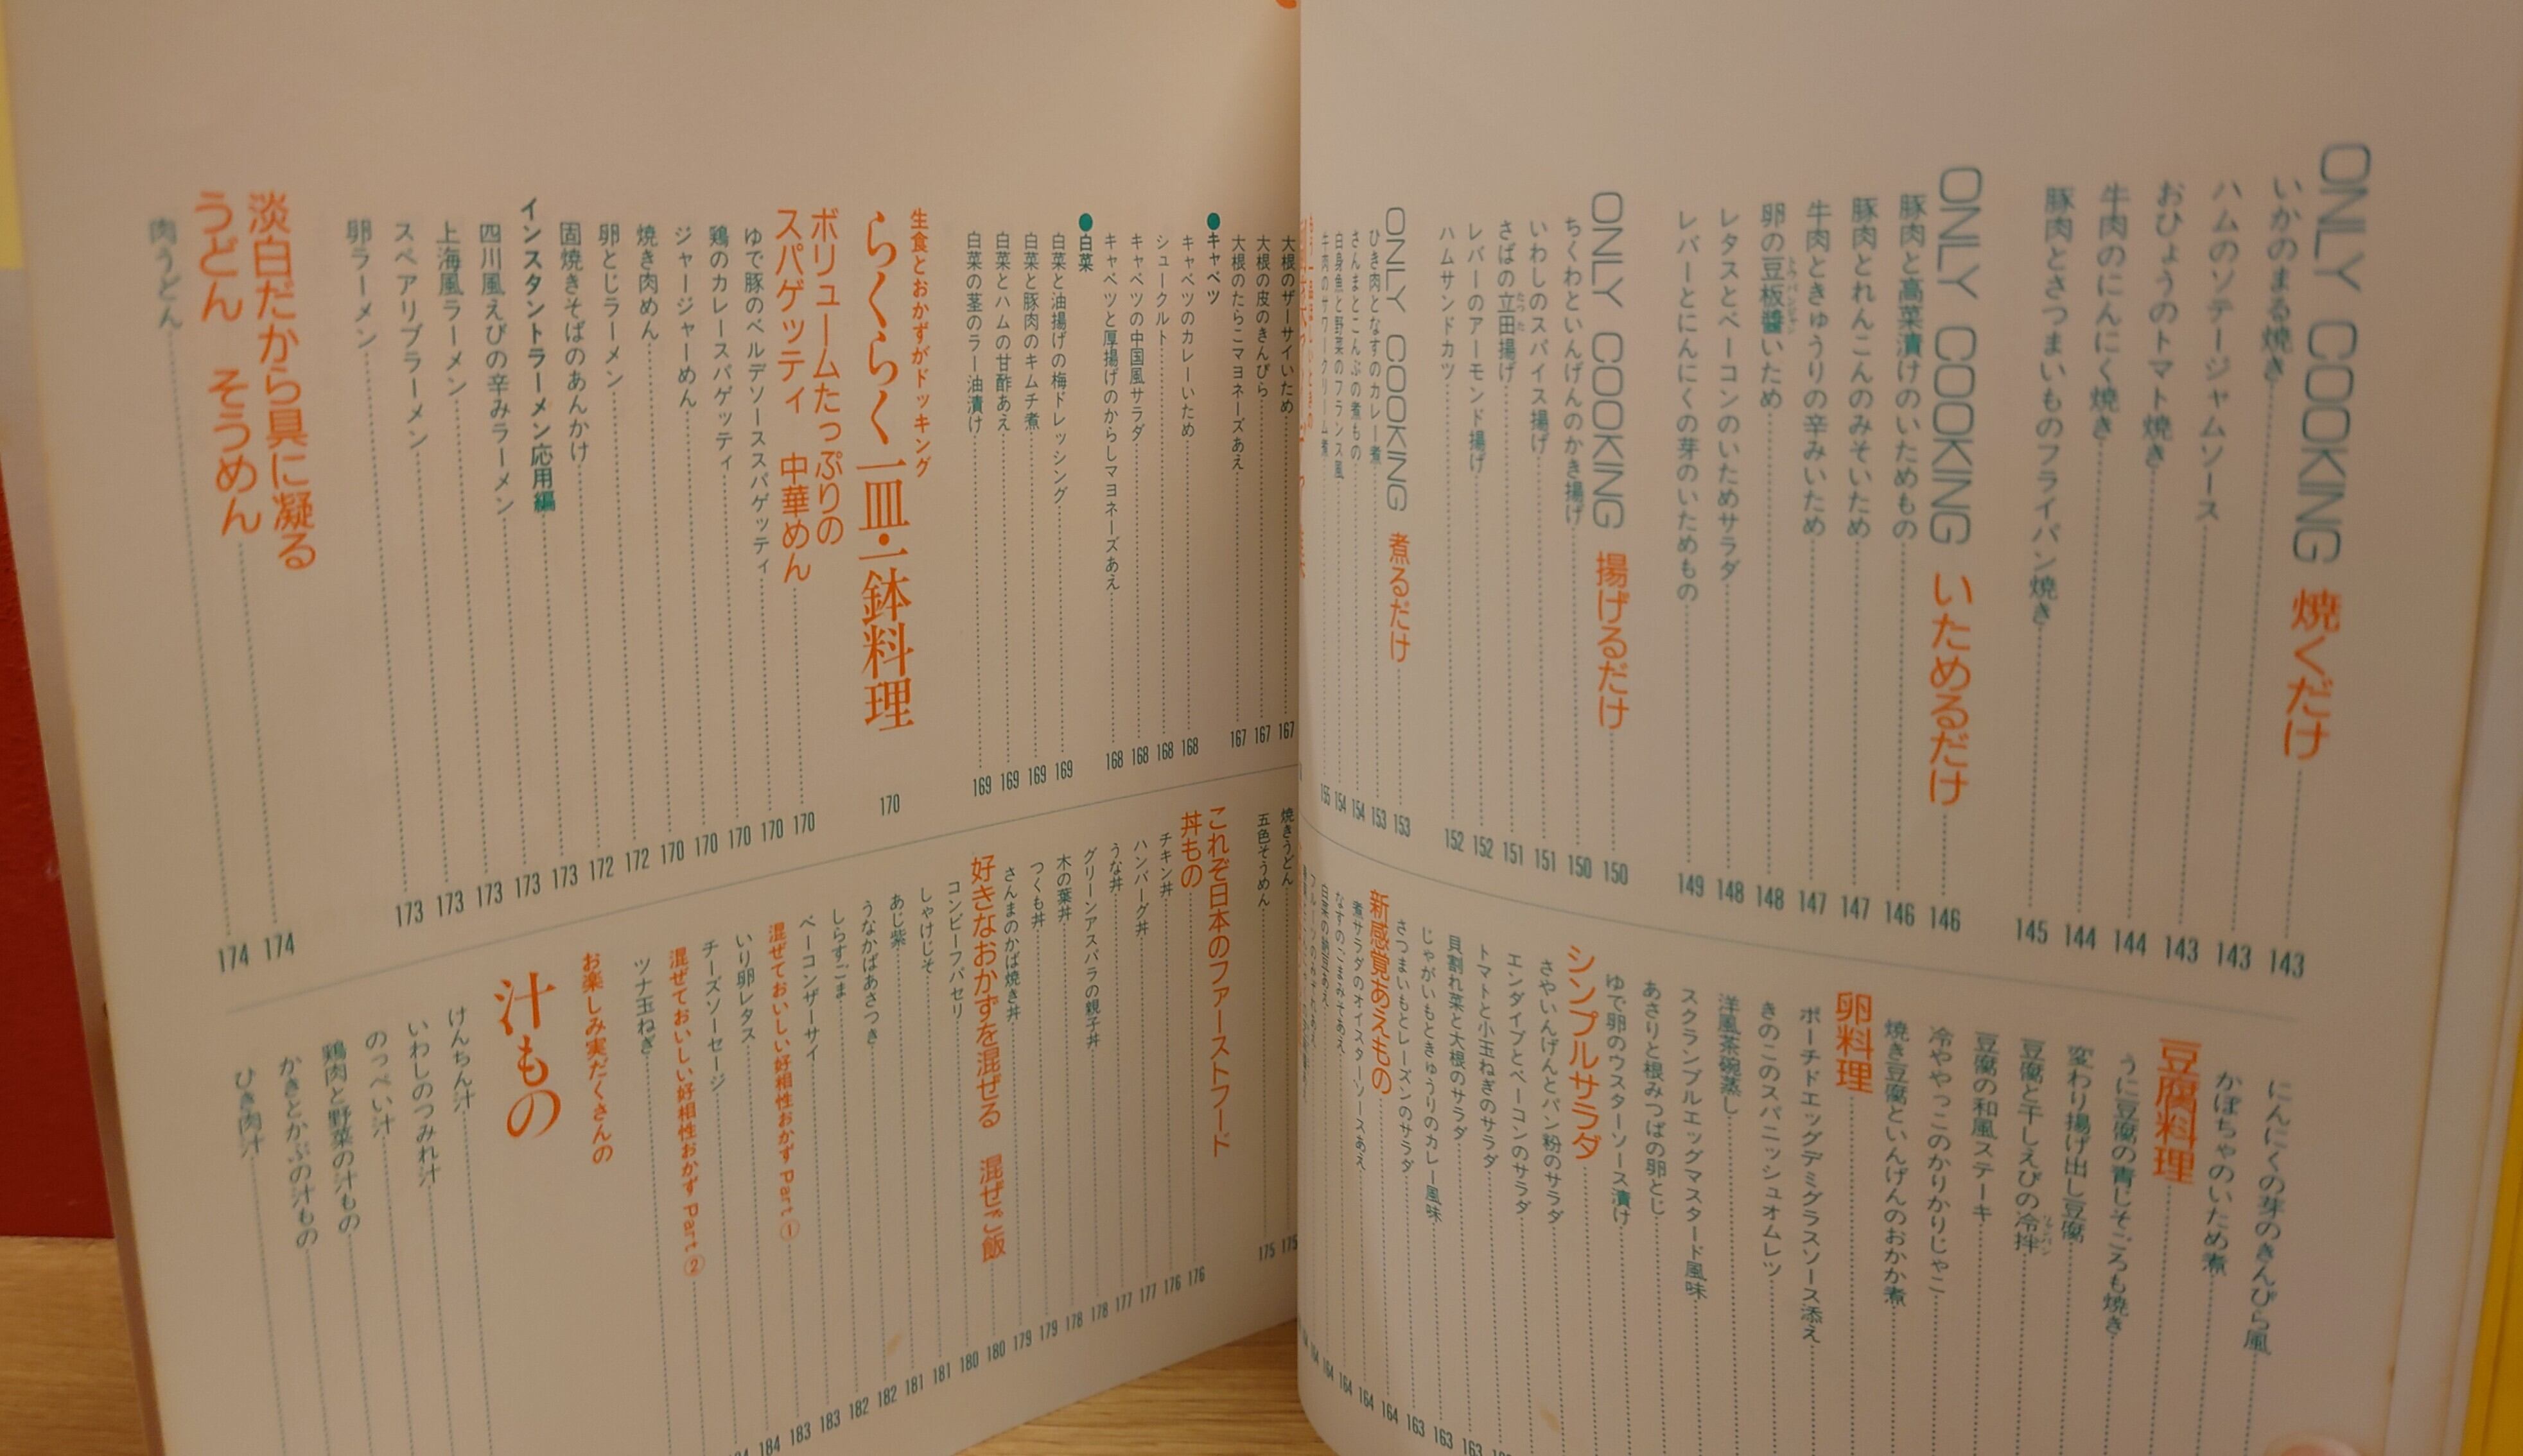 ONLY COOKING 焼くだけ 143
いかのまる焼き 143
ハムのソテージャムソース 143
おひょうのトマト焼き 144
牛肉のにんにく焼き 144
豚肉とさつまいものフライパン焼き 145
ONLY COOKING いためるだけ 146
豚肉と高菜漬けのいためもの 146
豚肉とれんこんのみそいため 147
牛肉ときゅうりの辛みいため 147
卵の豆板醬いため 148
レタスとベーコンのいためサラダ 148
レバーとにんにくの芽のいためもの 149
ONLY COOKING 揚げるだけ 150
ちくわといんげんのかき揚げ 150
いわしのスパイス揚げ 151
さばの立田揚げ 151
レバーのアーモンド揚げ 152
ハムサンドカツ 152
ONLY COOKING 煮るだけ 153
ひき肉となすのカレー煮 153
さんまとこんぶの煮もの 154
白身魚と野菜のフランス風 154
牛肉のサワークリーム煮 155
にんにくの芽のきんぴら風
かぼちゃのいため煮
豆腐料理
うに豆腐の青じそごろも焼き
変わり揚げ出し豆腐
豆腐と干しえびの冷拌
豆腐の和風ステーキ
冷ややっこのかりかりじゃこ
焼き豆腐といんげんのおかか煮
卵料理
ポーチドエッグデミグラスソース添え
きのこのスパニッシュオムレツ
洋風茶碗蒸し
スクランブルエッグマスタード風味
あさりと根みつばの卵とじ
ゆで卵のウスターソース漬け
シンプルサラダ
さやいんげんとパン粉のサラダ
エンダイブとベーコンのサラダ
トマトと小玉ねぎのサラダ 163
貝割れ菜と大根のサラダ 163
じゃがいもときゅうりのカレー風味 163
さつまいもとレーズンのサラダ 163
新感覚あえもの 164
煮サラダのオイスターソースあえ 164
なすのごまみそあえ 164
白菜の納豆あえ 164
大根のザーサイいため 167
大根の皮のきんぴら 167
大根のたらこマヨネーズあえ 167
●キャベツ
キャベツのカレーいため 168
シュークルト 168
キャベツの中国風サラダ 168
キャベツと厚揚げのからしマヨネーズあえ 168
●白菜
白菜と油揚げの梅ドレッシング 169
白菜と豚肉のキムチ煮 169
白菜とハムの甘酢あえ 169
白菜の茎のラー油漬け 169
生食とおかずがドッキング
らくらく一皿・一鉢料理 170
ボリュームたっぷりの
スパゲッティ 中華めん 170
ゆで豚のベルデソーススパゲッティ 170
鶏のカレースパゲッティ 170
ジャージャーめん 170
焼き肉めん 170
卵とじラーメン 172
固焼きそばのあんかけ 172
インスタントラーメン応用編 173
四川風えびの辛みラーメン 173
上海風ラーメン 173
スペアリブラーメン 173
卵ラーメン 173
淡白だから具に凝る
うどん そうめん 174
肉うどん 174
焼きうどん 175
五色そうめん 175
これぞ日本のファーストフード
丼もの 176
チキン丼 176
ハンバーグ丼 177
うな丼 177
グリーンアスパラの親子丼 178
木の葉丼 178
つくも丼 179
さんまのかば焼き丼 179
好きなおかずを混ぜる 混ぜご飯 180
コンビーフパセリ 180
しゃけじそ 181
あじ紫 181
うなかばあさつき 182
しらすごま 182
ベーコンザーサイ 183
混ぜておいしい好相性おかず Part① 183
いり卵レタス 184
チーズソーセージ
混ぜておいしい好相性おかず Part②
ツナ玉ねぎ
お楽しみ実だくさんの
汁もの
けんちん汁
いわしのつみれ汁
のっぺい汁
鶏肉と野菜の汁もの
かきとかぶの汁もの
ひき肉汁